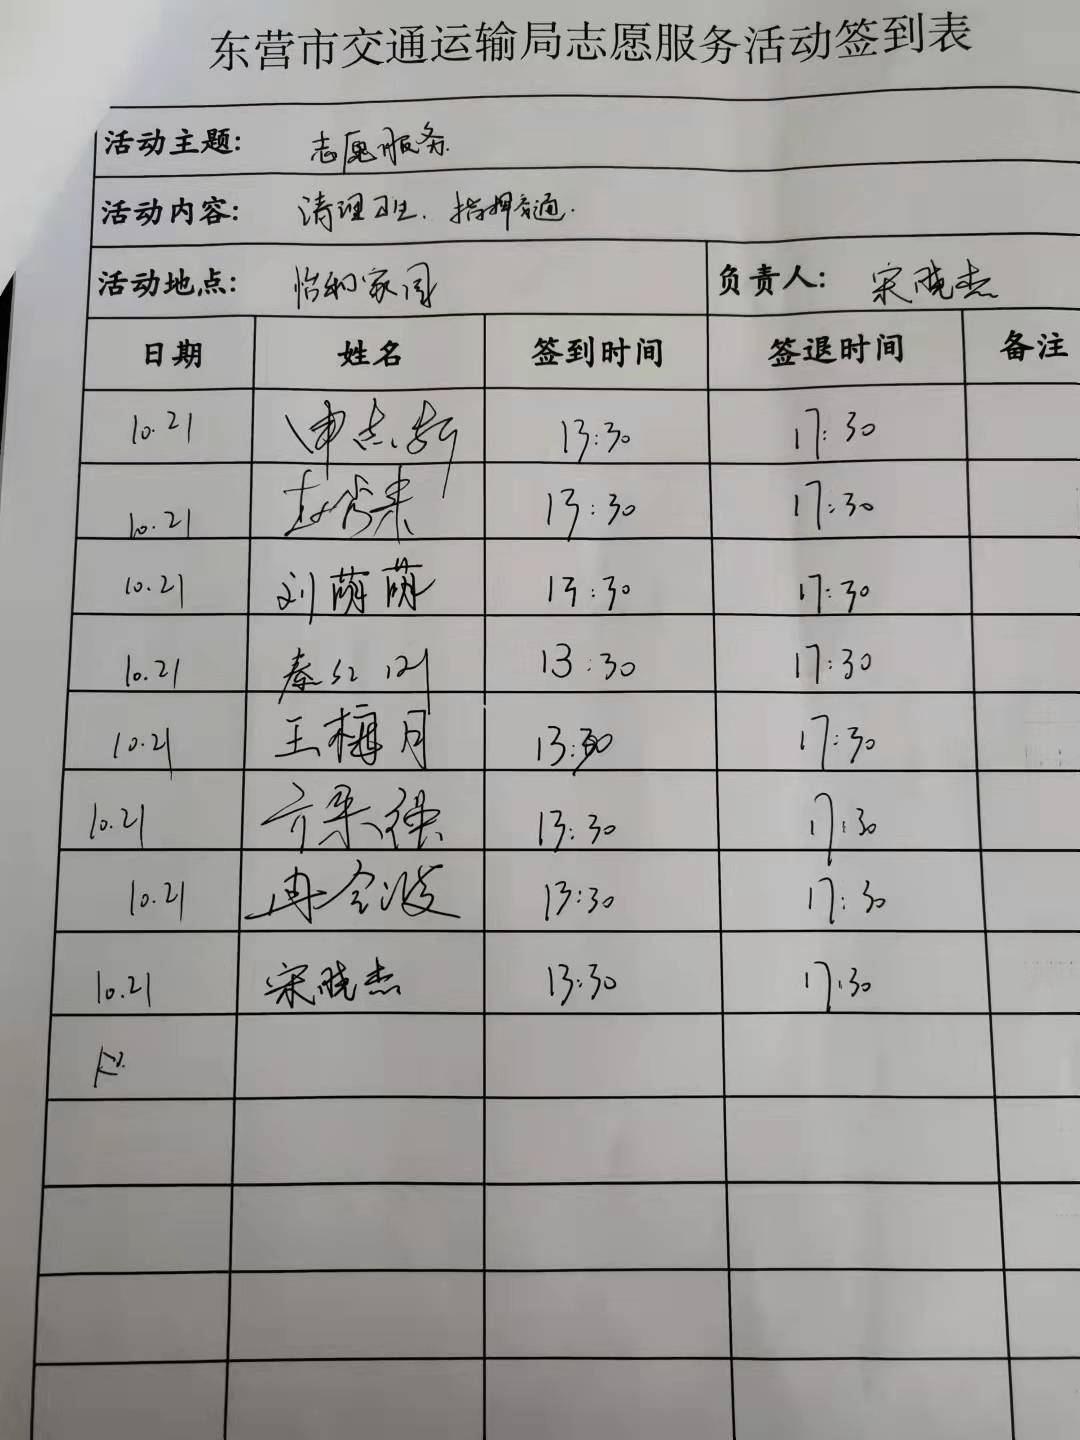 东营市交通运输局志愿服务活动签到表
活动主题: 志愿服务
活动内容: 清理卫生. 指挥交通.
活动地点: 怡和家园 负责人: 宋晓杰
日期 姓名 签到时间 签退时间 备注
10.21 13:30 17:30
10.21 13:30 17:30
10.21 刘萌萌 13:30 17:30
10.21 秦红 13:30 17:30
10.21 王梅月 13:30 17:30
10.21 13:30 17:30
10.21 冉令波 13:30 17:30
10.21 宋晓杰 13:30 17:30